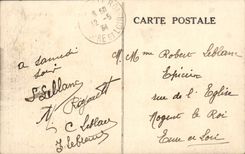 CARTE POSTALE
12-5
34
à samedi
soir
S. Leblanc
C Leblanc
M. Mme Robert Leblanc
Epicier
rue de l'Eglise
Nogent le Roi
Eure et Loir